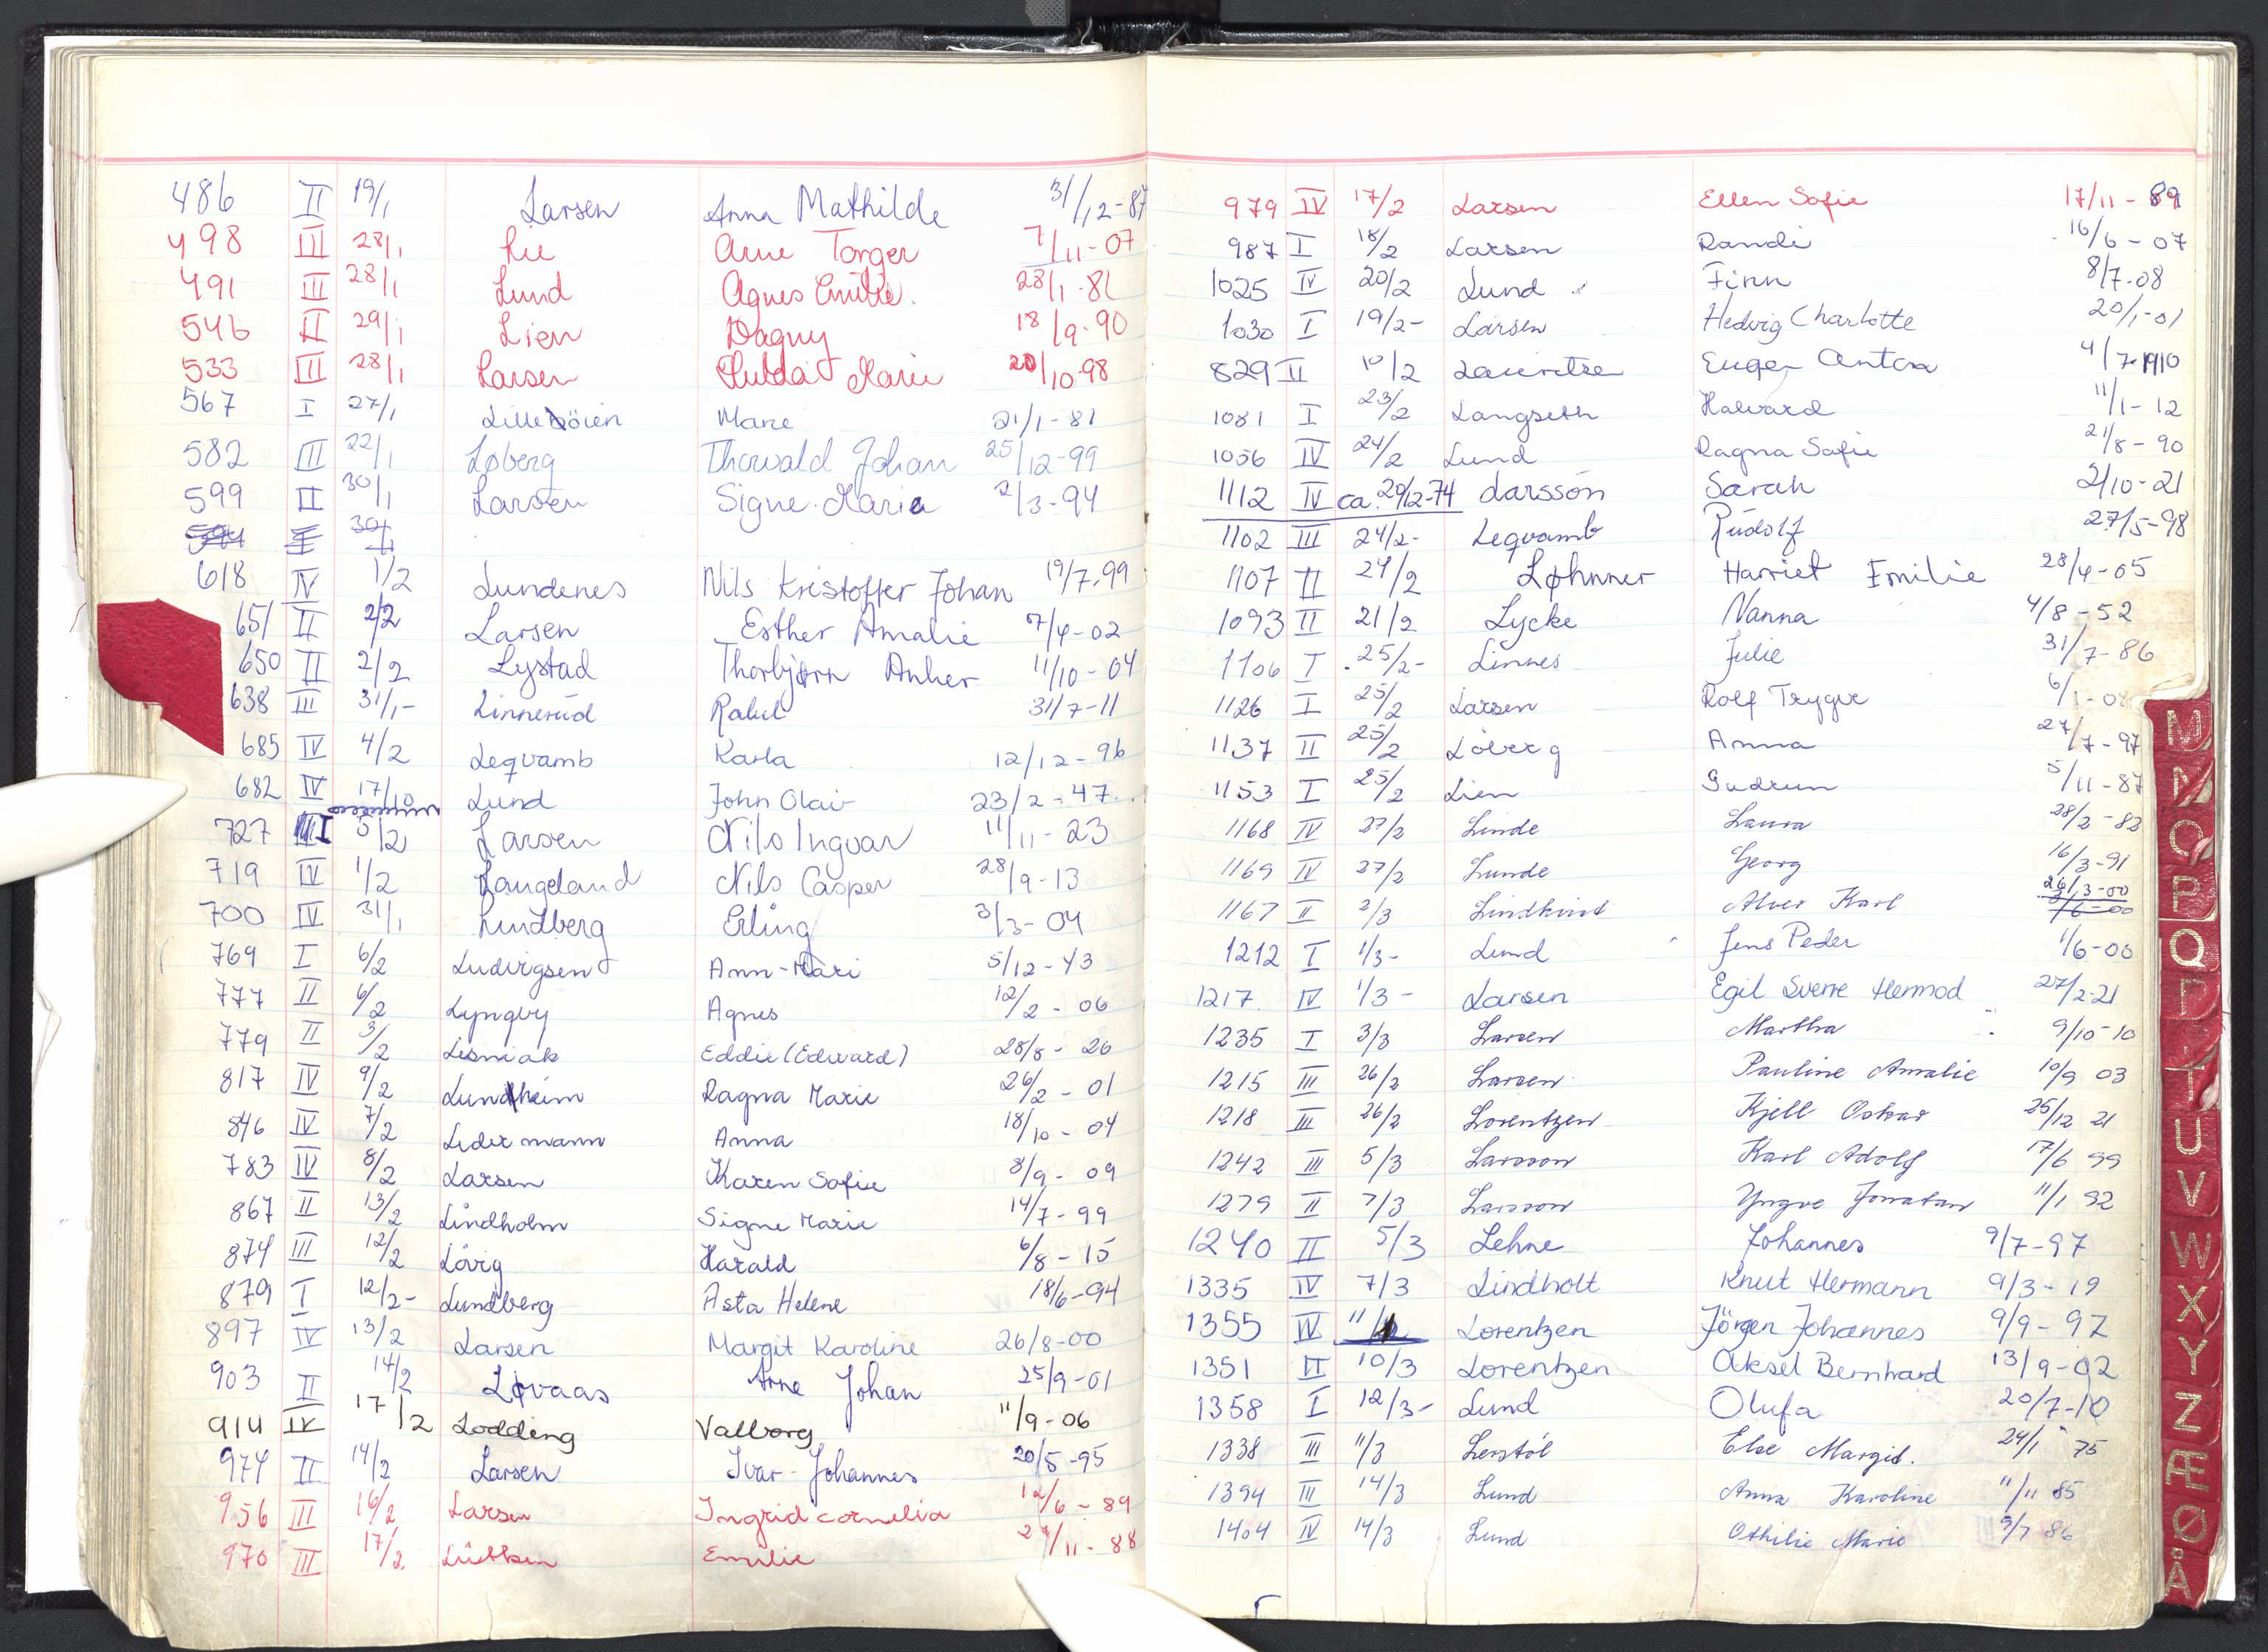 486 II 19/1 Larsen Anna Mathilde 31/12-87
498 III 28/1 Lie Arne Torger 7/11-07
491 III 28/1 Lund Agnes Emilie. 28/1-81
546 II 29/1 Lien Dagny 18/9-90
533 III 28/1 Larsen Hulda Marie 20/10-98
567 I 27/1 Marie 21/1-81
582 III 22/1 Løberg Thorvald Johan 25/12-99
599 II 30/1 Larsen Signe Marie 2/3-94
594 30/1
618 IV 1/2 Lundenes Nils Kristoffer Johan 19/7-99
651 II 2/2 Larsen Esther Amalie 7/4-02
650 II 2/2 Lystad Thorbjørn Anker 11/10-04
638 III 31/1- Linnerud Rakel 31/7-11
685 IV 4/2 Leqvamb Karla 12/12-96
682 IV 17/10 Lund John Olav 23/2-47
727 I 5/2 Larsen Nils Ingvar 11/11-23
719 IV 1/2 Langeland Nils Casper 28/9-13
700 IV 31/1 Lindberg Erling 3/3-04
769 I 6/2 Ludvigsen Ann-Mari 5/12-43
777 II 6/2 Lyngby Agnes 12/2-06
779 II 3/2 Lesniak Eddie (Edward) 28/8-26
817 IV 9/2 Lundheim Ragna Marie 26/2-01
846 IV 7/2 Ledermann Anna 18/10-04
783 IV 8/2 Larsen Karen Sofie 8/9-09
867 II 13/2 Lindholm Signe Marie 14/7-99
874 III 12/2 Lövig Harald 6/8-15
879 I 12/2- Lundberg Asta Helene 18/6-94
897 IV 13/2 Larsen Margit Karoline 26/8-00
903 II 14/2 Løvaas Arne Johan 25/9-01
914 IV 17/2 Lodding Valborg 11/9-06
974 II 14/2 Larsen Ivar-Johannes 20/5-95
956 III 16/2 Larsen Ingrid cornelia 12/6-89
970 III 17/2. Lübben Emilie 11-88
979 IV 17/2 Larsen Ellen Sofie 17/11-89
987 I 18/2 Larsen Randi 16/6-07
1025 IV 20/2 Lund Finn 8/7-08
1030 I 19/2- Larsen Hedvig Charlotte 20/1-01
829 II 10/2 Lauritse Eugen Anton 4/7-1910
1081 I 23/2 Langseth Halvard 11/1-12
1056 IV 24/2 Lund Ragna Sofie 21/8-90
1112 IV ca. 20/12-74 Larsson Sarah 2/10-21
1102 III 24/2- Leqvamb Rudolf 27/5-98
1107 II 24/2 Løhnner Harriet Emilie 28/4-05
1093 II 21/2 Lycke Nanna 4/8-52
1106 I 25/2- Linnes Julie 31/7-86
1126 I 25/2 Larsen Rolf Trygve 6/1-08
1137 II 25/2 Löberg Anna 27/7-97
1153 I 25/2 Lien Gudrun 5/11-87
1168 IV 27/2 Linde Laura 28/2-82
1169 IV 27/2 Lunde Georg 16/3-91
1167 II 2/3 Lindkvist Karl 26/3-00
1212 I 1/3- Lund Jens Peder 1/6-00
1217 IV 1/3- Larsen Egil Sverre Hermod 27/2-21
1235 I 3/3 Larsen Martha 9/10-10
1215 III 26/2 Larsen Pauline Amalie 10/9 03
1218 III 26/2 Lorentzen Kjell Oskar 25/12 21
1242 III 5/3 Larsson Karl Adolf 17/6 99
1279 II 7/3 Larsson Yngve Jonatan 11/1 92
1240 II 5/3 Lehne Johannes 9/7-97
1335 IV 7/3 Lindholt Knut Hermann 9/3-19
1355 IV 11/ Lorentzen Jörgen Johannes 9/9-97
1351 II 10/3 Lorentzen Aksel Bernhard 13/9-02
1358 I 12/3- Lund Olufa 20/7-10
1338 III 11/3 Lerstöl Else Margit. 24/1 75
1394 III 14/3 Lund Anna Karoline 11/11 85
1404 IV 14/3 Lund Othilie Marie 9/7 86
M
N
O
P
Q
R
T
U
V
W
X
Y
Z
Æ
Ø
Å